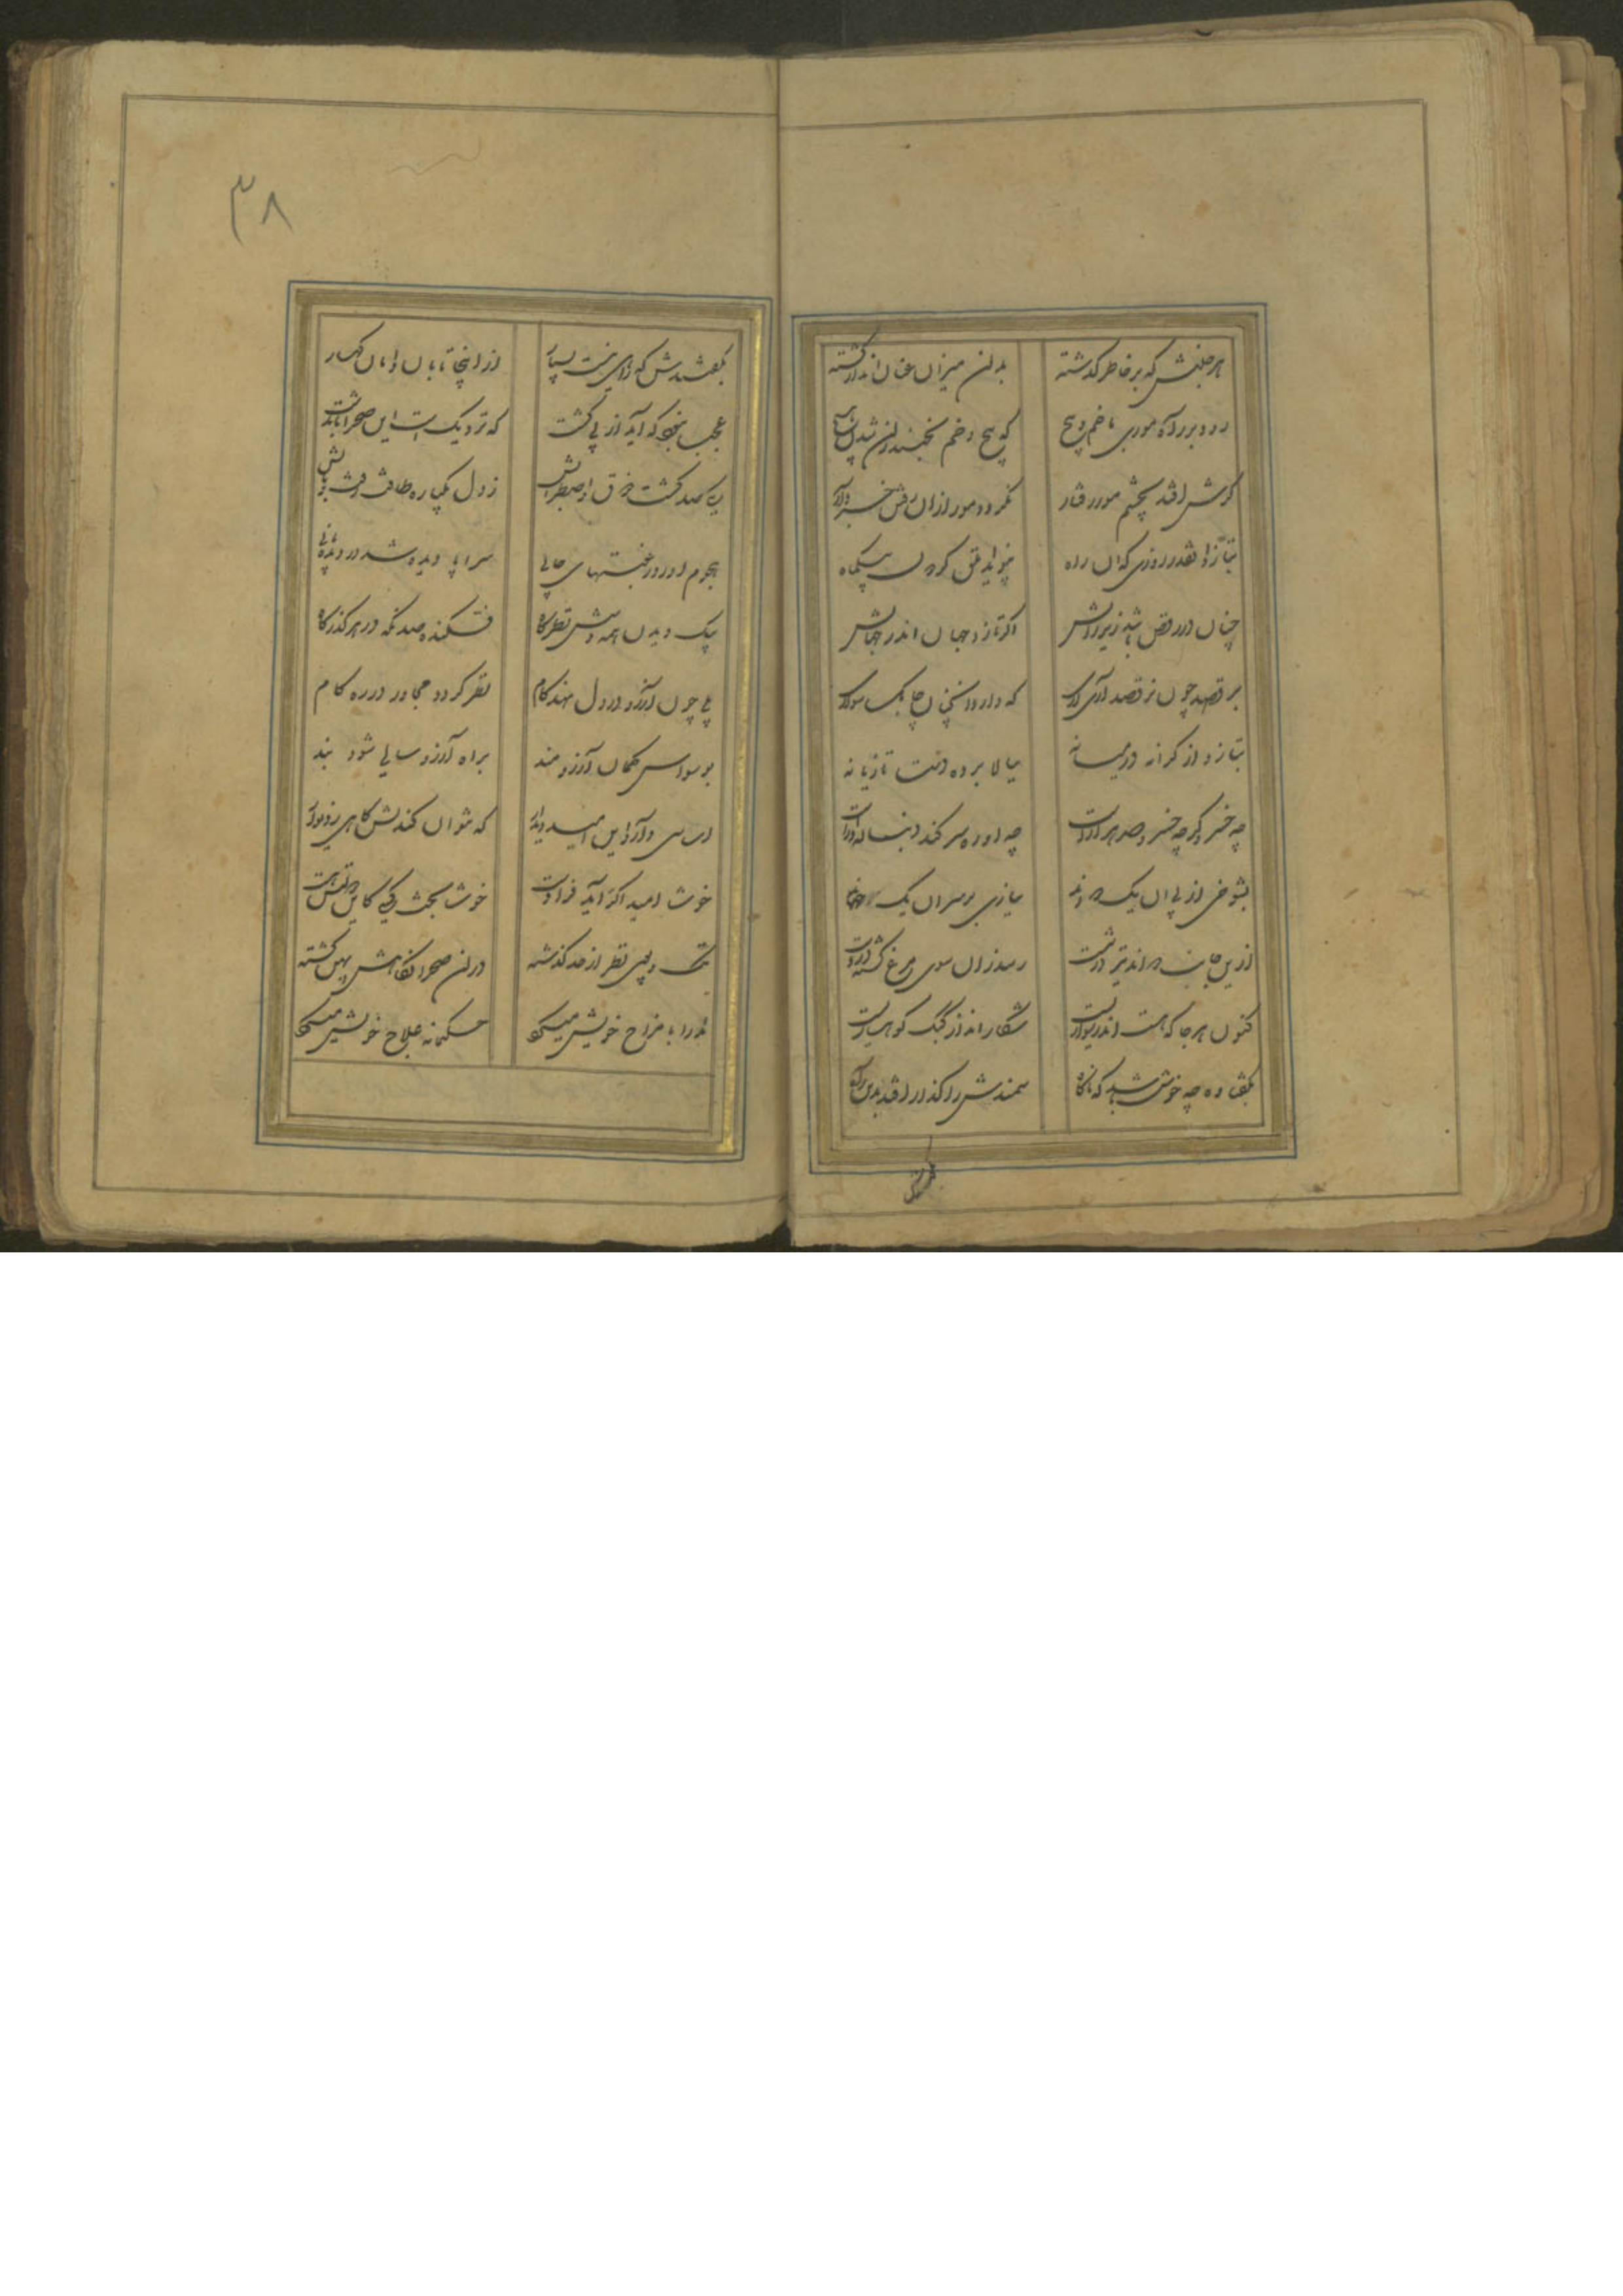 هر جنبش که بر خاطر گذشته
بدان میزان عنان انداز گشته
رود بر راه موری با خم و پیچ
که پیچ و خم نجنبد
گرش افتد بچشم مور رفتار
نگردد مور از آن رفتن خبردار
بتازد آنقدر روزی که آن راه
چنان در رقص باشد زیر رانش
اگر تازد جهان اندر جهانش
برقصد چون نرقصد آری آری
که دارد اینچنین چابک سواری
بتازد از کرانه در میانه
ببالا برده دست تازیانه
چه خسرو گرچه خسرو صد هزارست
چه او ره سر کند دنباله دارست
بشوخی از پی آن یک دواند
ببازی بر سر آن یک جهاند
ازین جانب دواند تیر در شست
رسد زان سوی مرغ کشته در دست
کنون هر جا که هست اندر سواریست
شکار انداز کبک کوهساریست
بگفتا وه چه خوش باشد که ناگاه
سمندش را گذار افتد بدین راه
بگفتندش
۳۸
بگفتندش که زای نیست بسیار
از اینجا تا بآن دامان کهسار
عجب نبود که آید از پی گشت
که نزدیک است این صحرا بآن دشت
یکی صد گشت شوق و اضطرابش
ز دل یکباره طاقت رفت و تابش
هجوم آورد رغبتهای جانی
سراپا دیده شد در دیده بانی
بیک دیدن همه وسش نظرگاه
فکنده صد نگه در هر گذرگاه
بلی چون آرزو در دل نهد گام
نظر گردد مجاور در ره کام
بوسواس گمان آرزومند
براه آرزو سالی شود بند
این امیدواری
که نتوان کندنش گاهی بزور
خوشا امید اگر آید فرا دست
خوشا بخت کسی کاین
تک و پوی نظر از حد گذشته
در آن صحرا نگاهش پهن گشته
مدارا با مزاج خویش میکرد
حکیمانه علاج خویش میکرد